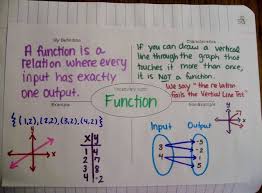 My Definition
A function is a
relation where every
input has exactly
one output.
Characteristics
If you can draw a vertical
line through the graph that
touches it more than once,
it is NOT a function.
We say "the relation
fails the Vertical Line Test"
Vocabulary Word
Function
Example
{(1,2),(2,2),(3,2),(4,2)}
x y
1 4
2 7
3 8
4 -2
Input Output
3
4
-5
-2
1
5